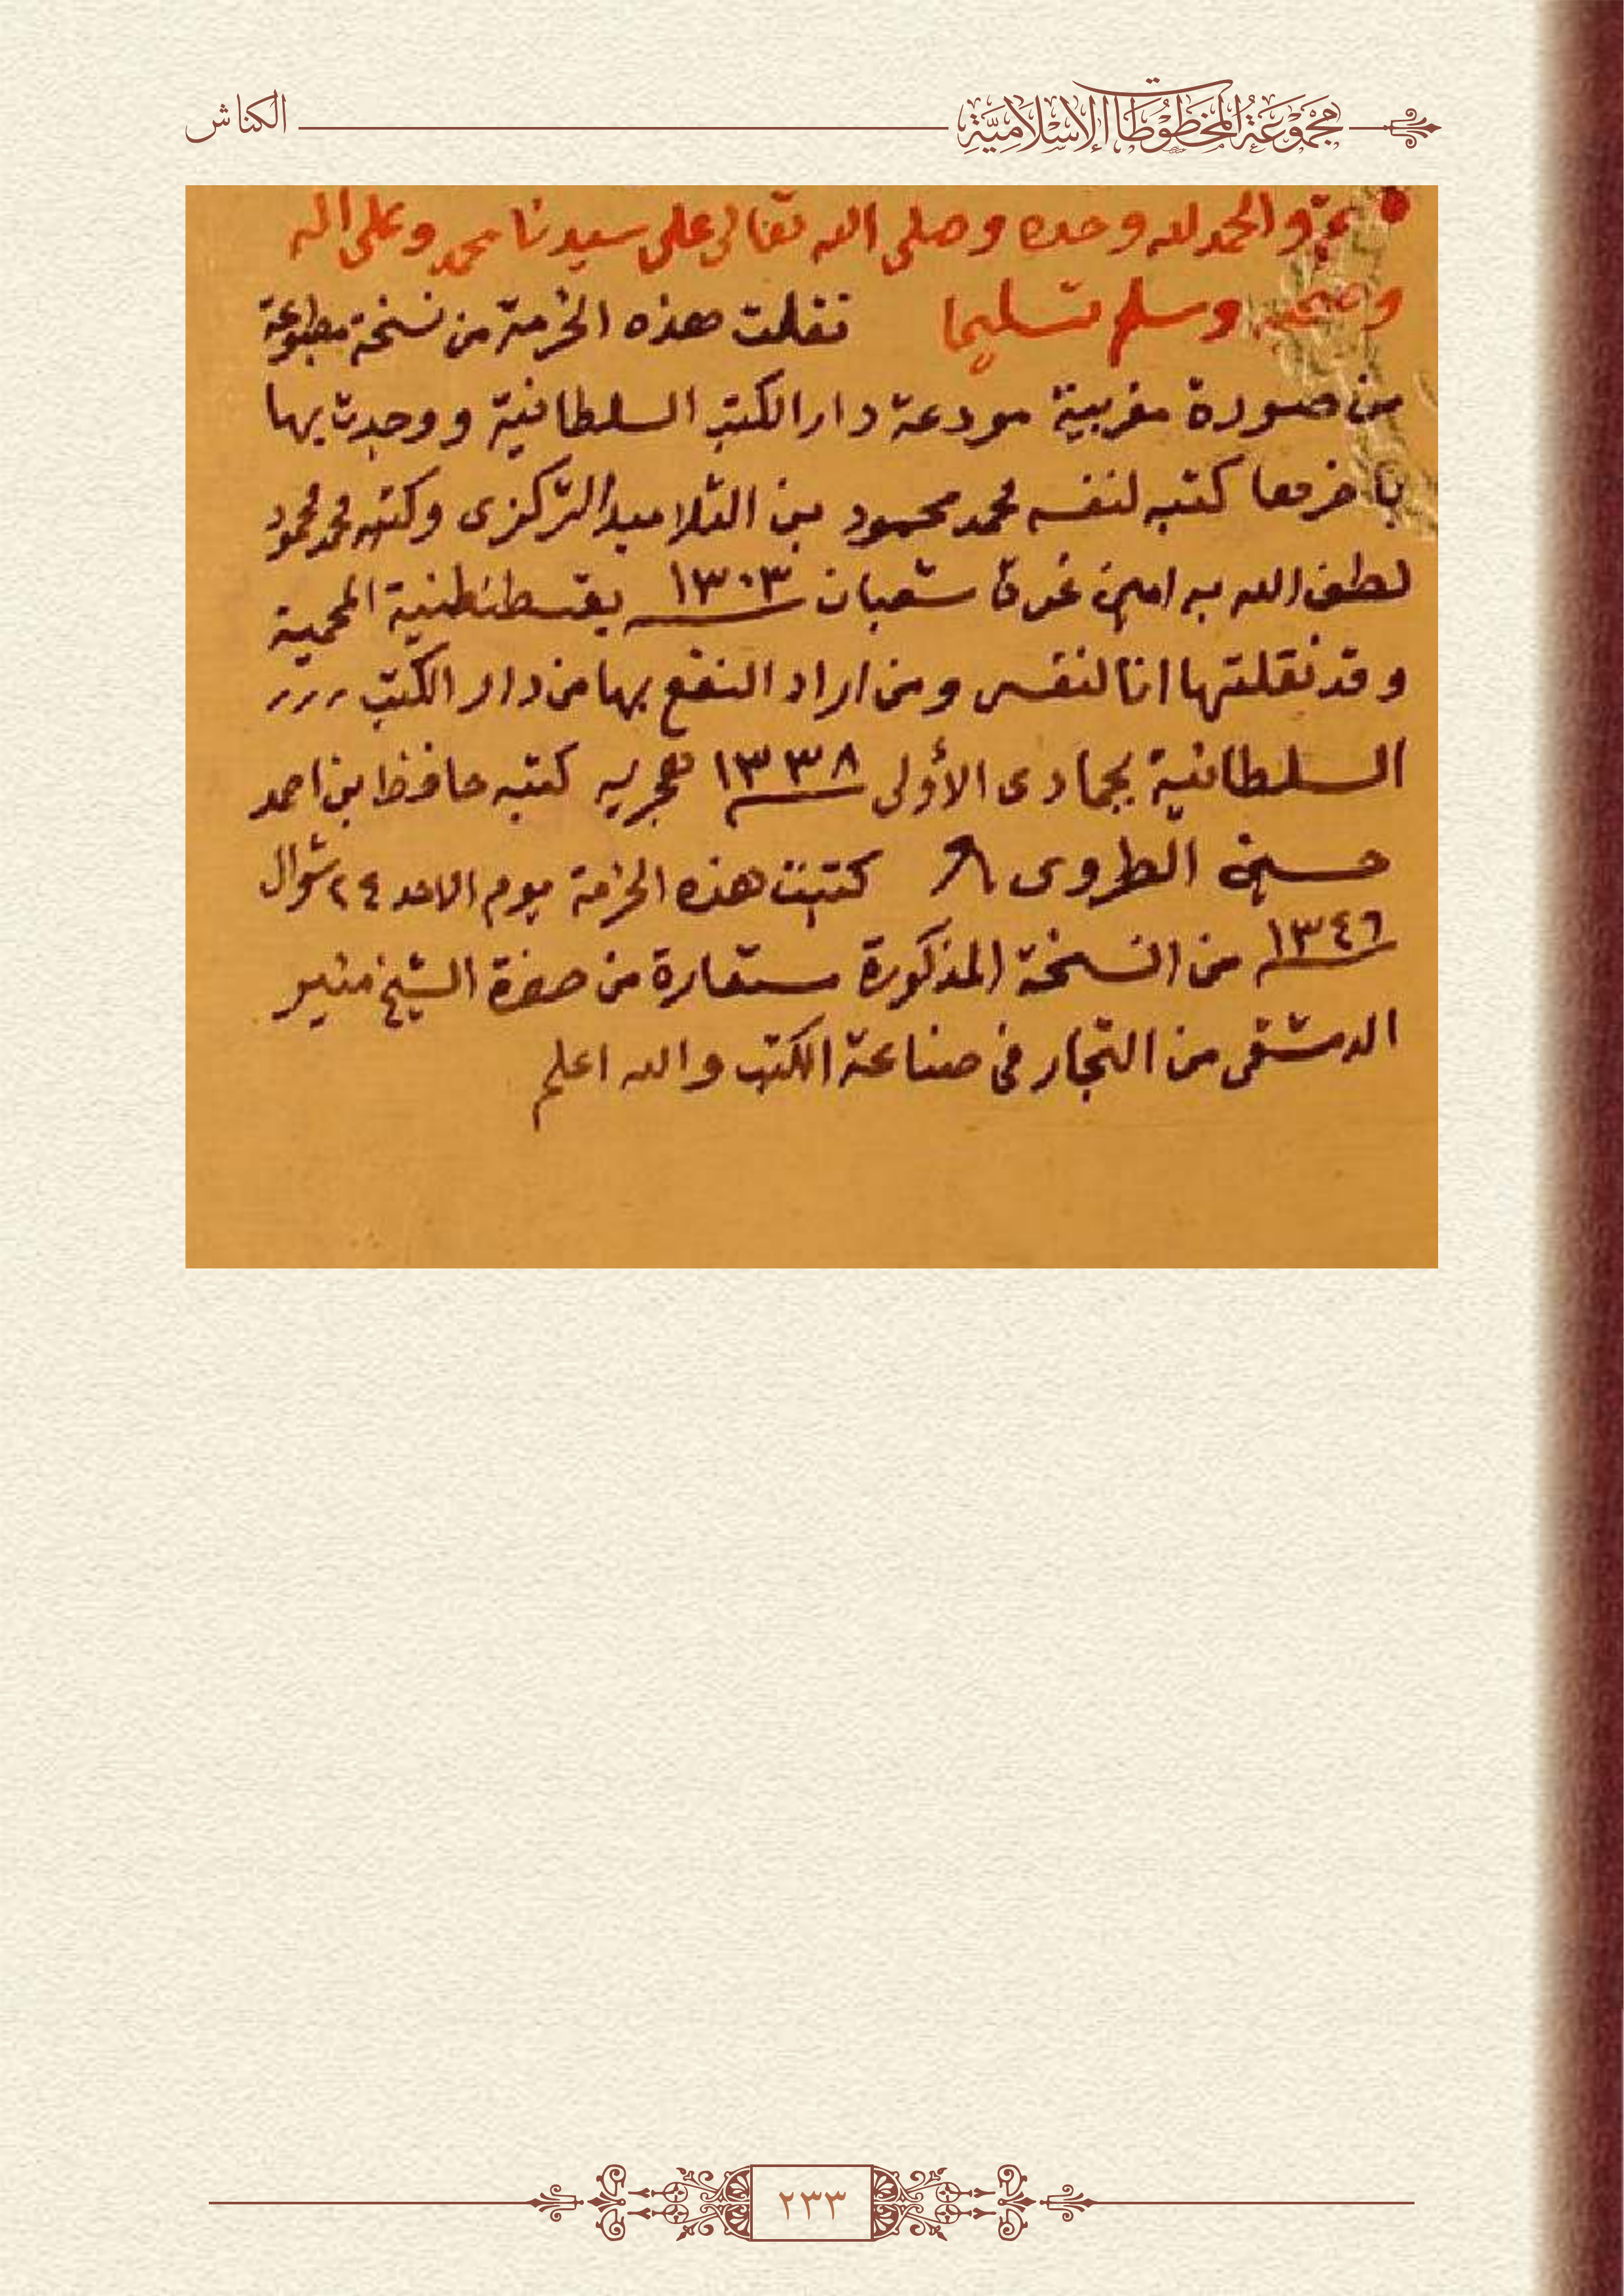 مجموعة المخطوطات الإسلامية
الكناش
والحمد لله وحده وصلى الله تعالى على سيدنا محمد وعلى اله
وصحبه وسلم تسليما نقلت هذه الخرمة من نسخة مطبوعة
من صورة مغربية مودعة دار الكتب السلطانية ووجدت بها
كتبه لنفسه محمد محمود بن التلاميد التركزى وكتبه محمد محمود
لطف الله به امين غرة شعبان ١٣٠٣ بقسطنطنية المحمية
وقد نقلتها انا لنفسى ومن اراد النفع بها من دار الكتب
السلطانية بجمادى الأولى ١٣٣٨ هجريه كتبه حافظ بن احمد
حسين الطروى كتبت هذه الخرمة يوم الاحد ٢٤ شوال
١٣٤٦ من النسخة المذكورة مستعارة من حضرة الشيخ منير
الدمشقى من التجار فى صناعة الكتب والله اعلم
٢٣٣